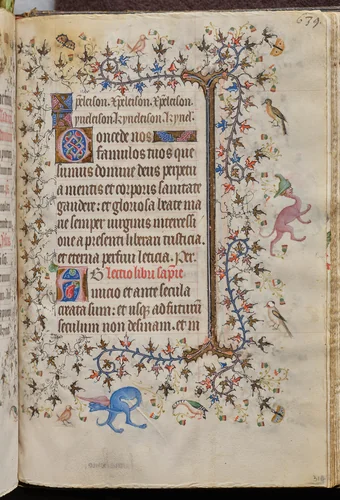 639.
Xpeleison. Xpeleison. Xpeleison.
Kyrieleison. Kyrieleison. Kyriel.
Concede nos
famulos tuos que
sumus domine deus perpetu
a mentis et corporis sanitate
gaudere: et gloriosa beate ma
rie semper virginis intercessi
one a presenti liberari tristicia.
et eterna perfrui leticia. Per.
Lectio libri sapie.
Ab inicio et ante secula
creata sum: et usque ad futurum
seculum non desinam. et in